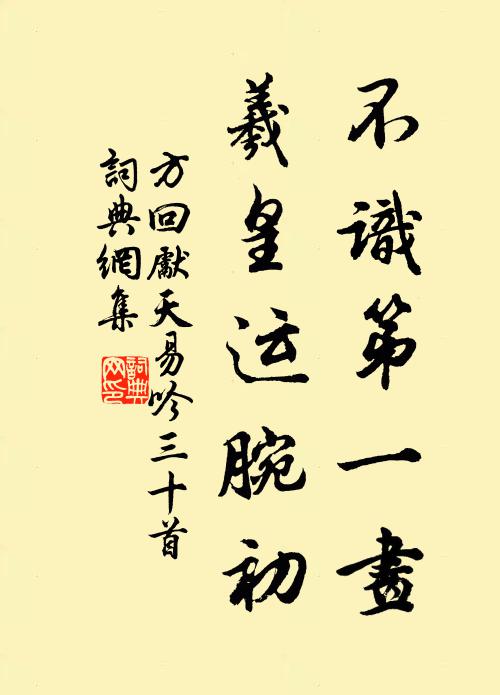 不識第一畫
羲皇运腕初
方回獻天易吟三十首
詞典網集
詞典網印